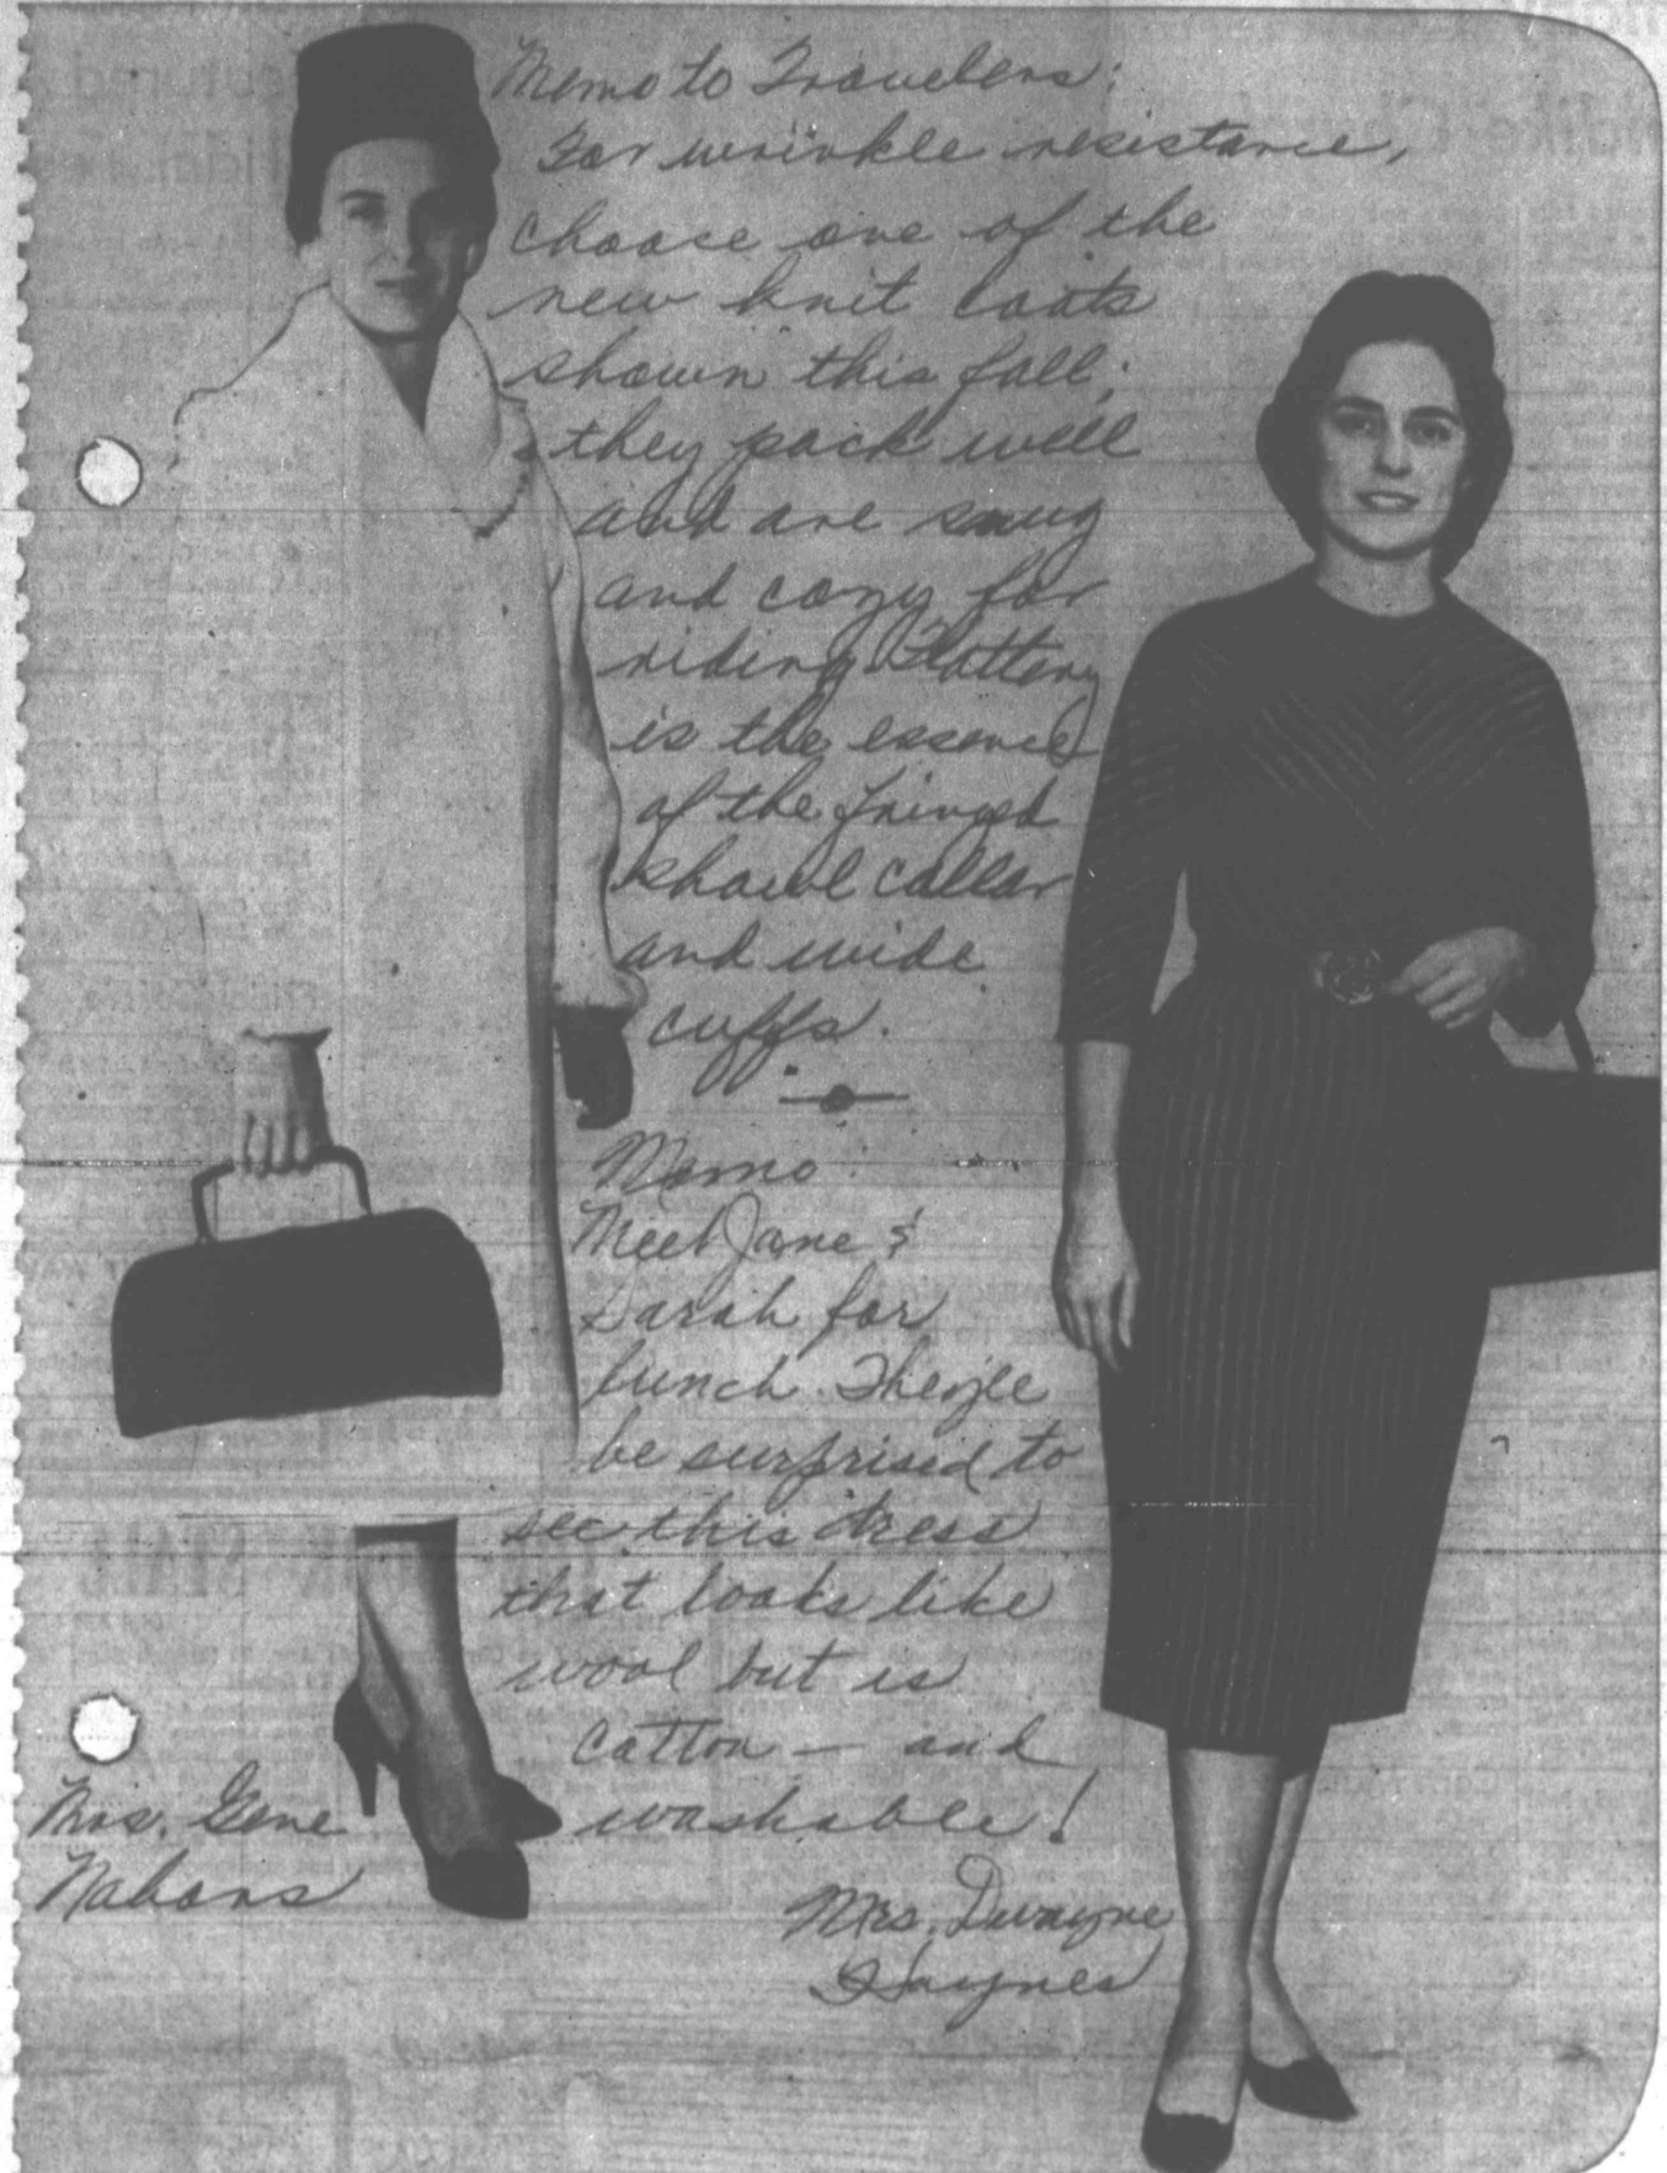 Memo to Travelers:
For wrinkle resistance,
choose one of the
new knit coats
shown this fall;
they pack well
and are snug
and cozy for
riding. Flattery
is the essence
of the fringed
shawl collar
and wide
cuffs.
Memo:
Meet Jane &
Sarah for
lunch. They'll
be surprised to
see this dress
that looks like
wool but is
cotton — and
washable!
Mrs. Gene
Nabors
Mrs. Dwayne
Haynes